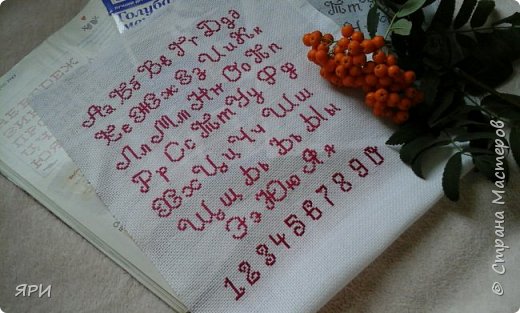 Голуба
Аа Бб Вв Гг Дд
Ее Жж Зз Ии Кк
Лл Мм Нн Оо Пп
Рр Сс Тт Уу Фф
Хх Цц Чч Шш
Щщ Ьь Ъъ Ыы
Ээ Юю Яя
1234567890
ЯРИ
© Страна Мастеров